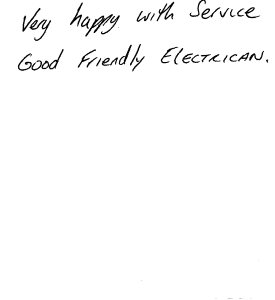 Very happy with Service
Good Friendly ELECTRICAN.